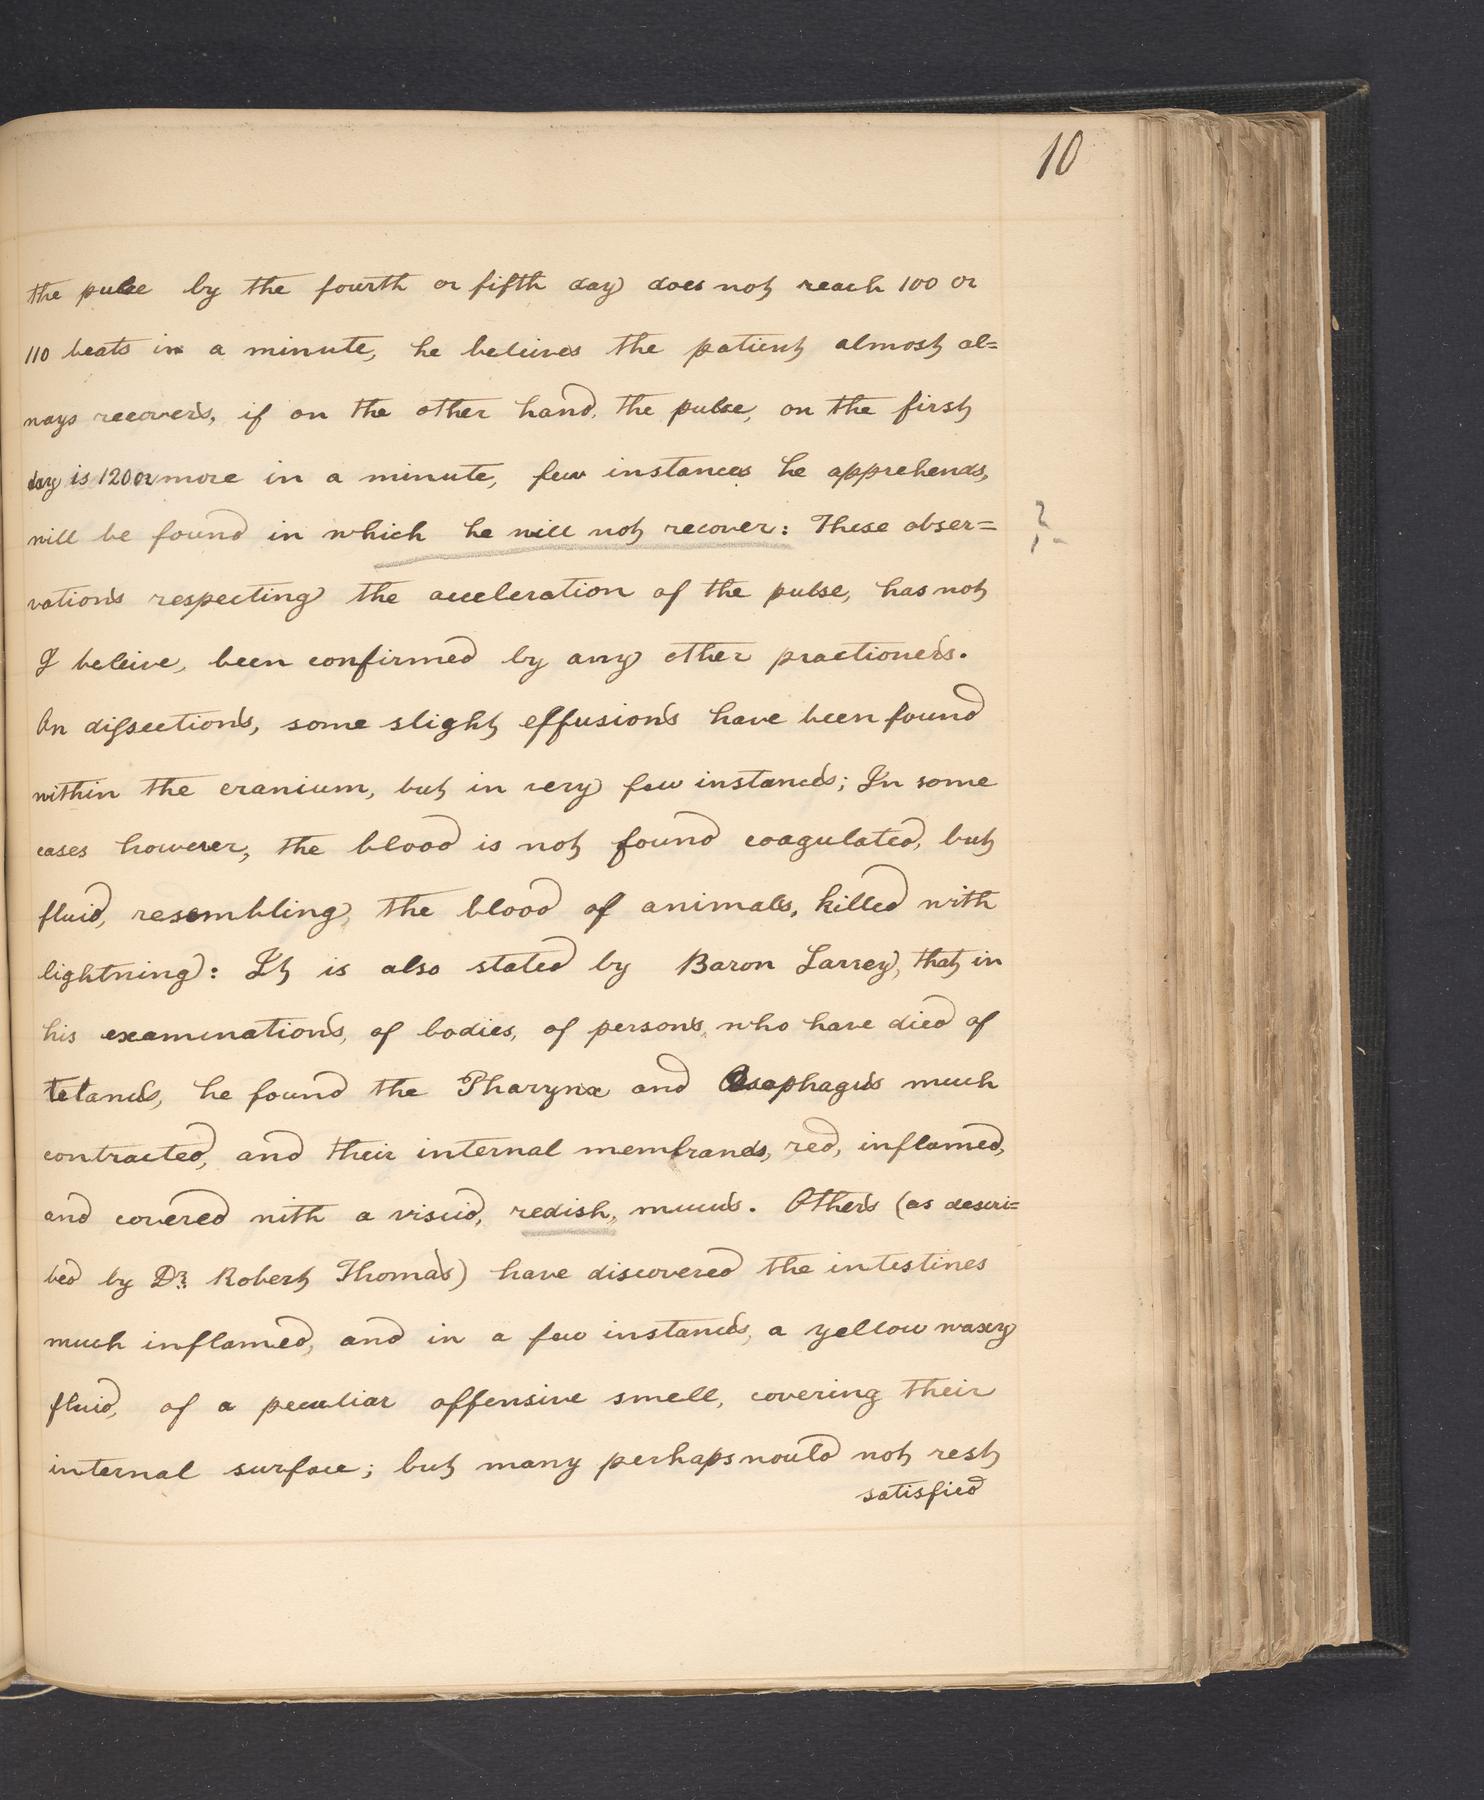 10
the pulse by the fourth or fifth day does not reach 100 or
110 beats in a minute, he beleives the patient almost al=
ways recovers, if on the other hand, the pulse, on the first
day is 120 or more in a minute, few instances he apprehends,
will be found in which he will not recover: These obser=
vations respecting the acceleration of the pulse, has not
I beleive, been confirmed by any other practioners.
On dissections, some slight effusions have been found
within the cranium, but in very few instances; In some
cases however, the blood is not found coagulated, but
fluid, resembling, the blood of animals, killed with
lightning: It is also stated by Baron Larrey, that in
his examinations, of bodies, of persons, who have died of
tetanus, he found the Pharynx and Oesophagus much
contracted, and their internal membrands, red, inflamed,
and covered with a viscid, redish, mucus. Others (as descri=
bed by Dr. Robert Thomas) have discovered the intestines
much inflamed, and in a few instances, a yellow waxy
fluid, of a peculiar offensive smell, covering their
internal surface; but many perhaps would not rest
satisfied